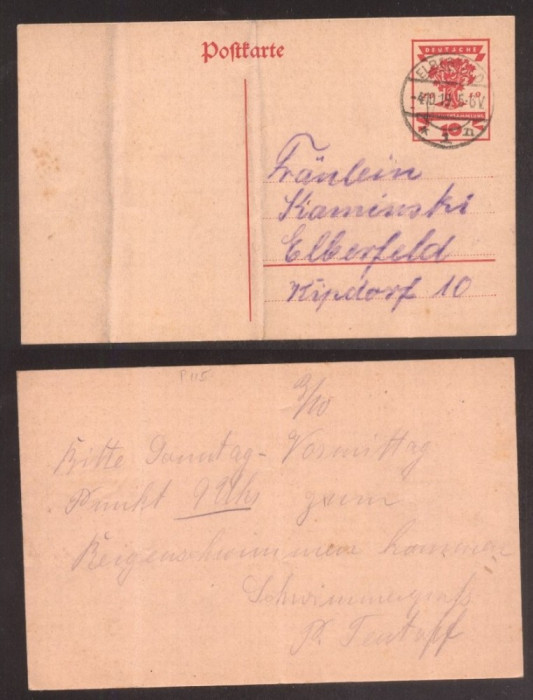 Postkarte
DEUTSCHE
ELBERFELD
10
Fräulein
Kaminski
Elberfeld
Kipdorf 10
P 115
3/10
Bitte Sonntag - Vormittag
Punkt 9 Uhr zum
Reigenschwimmen kommen
Schwimmergruß
P.